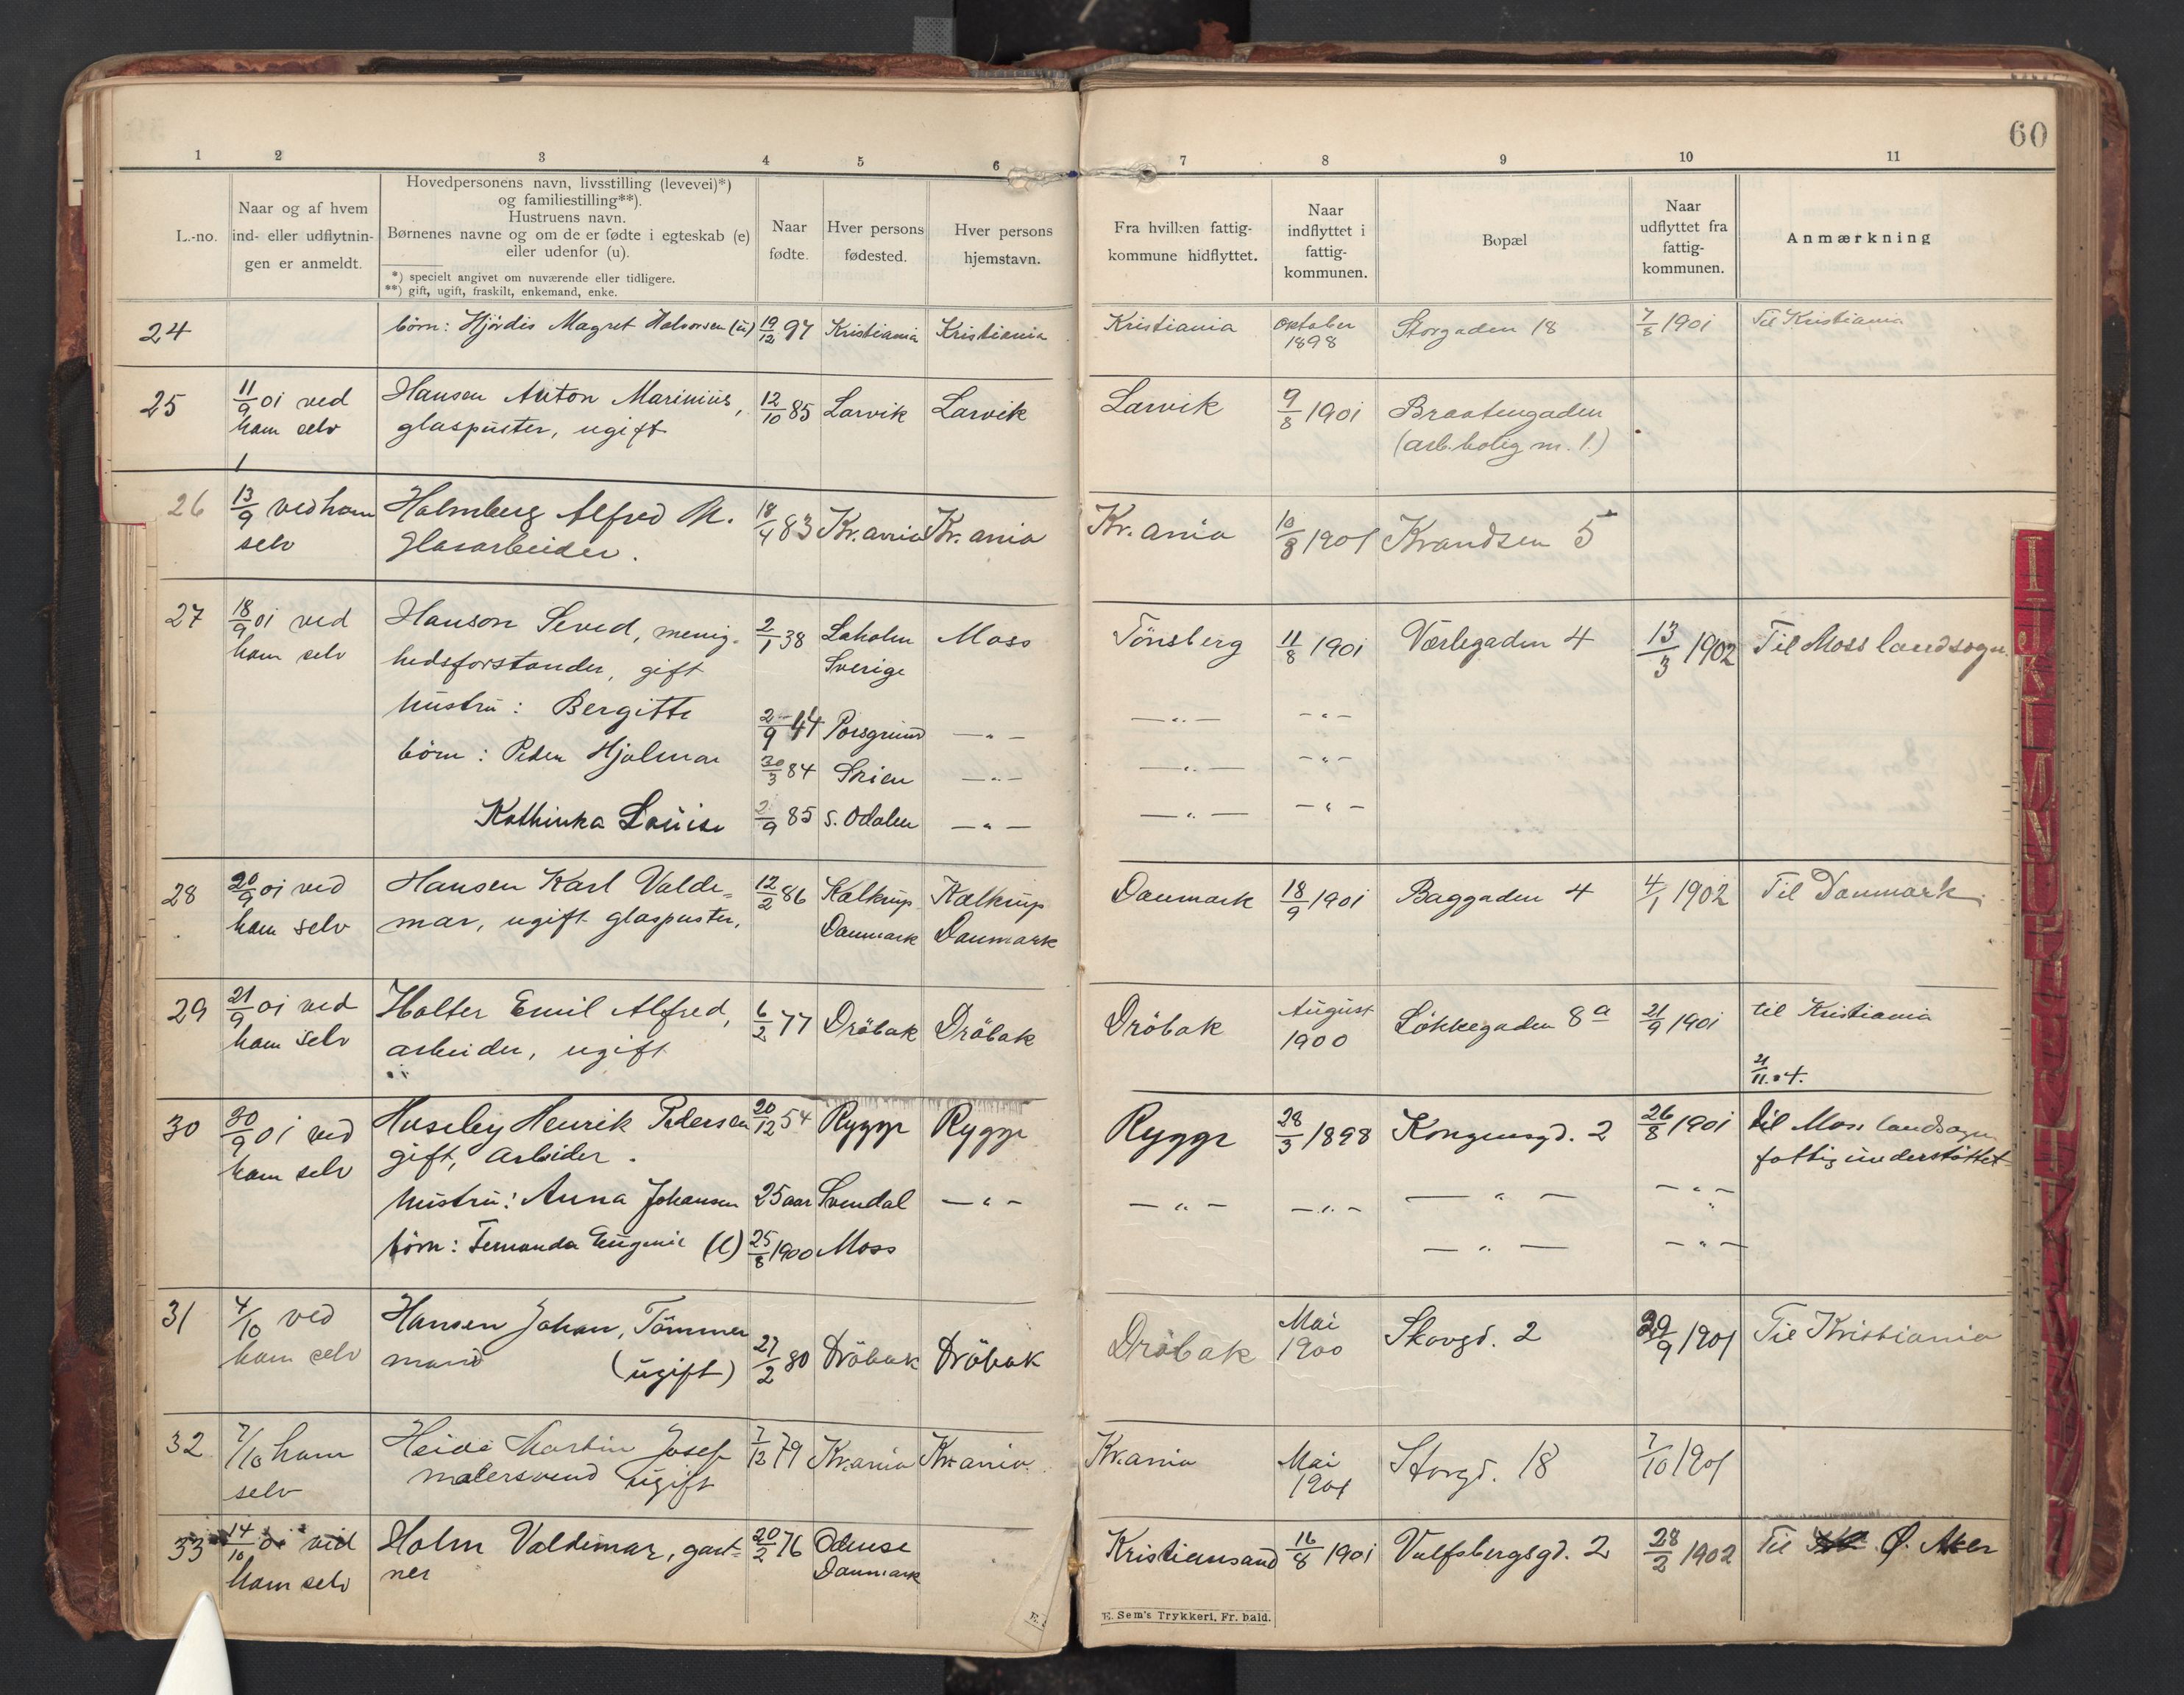 60
1 2 3 4 5 6 7 8 9 10 11
L.-no.
Naar og af hvem
ind- eller udflytnin-
gen er anmeldt.
Hovedpersonens navn, livsstilling (levevei)*)
og familiestilling**).
Hustruens navn.
Børnenes navne og om de er fødte i egteskab (e)
eller udenfor (u).
*) specielt angivet om nuværende eller tidligere.
**) gift, ugift, fraskilt, enkemand, enke.
Naar
fødte.
Hver persons
fødested.
Hver persons
hjemstavn.
Fra hvilken fattig-
kommune hidflyttet.
Naar
indflyttet i
fattig-
kommunen.
Bopæl
Naar
udflyttet fra
fattig-
kommunen.
Anmærkning
24 börn: Hjördis Magret Halvorsen (u) 19/12 97 Kristiania Kristiania Kristiania oktober Storgaden 18 7/8 1901 Til Kristiania
1898
25 11/9 01 ved Hansen Anton Marinius, 12/10 85 Larvik Larvik Larvik 9/8 1901 Braatengaden
ham selv glaspuster, ugift (arb.bolig m. 1.)
26 13/9 ved ham Holmberg Alfred M. 18/4 83 Kr.ania Kr.ania Kr.ania 10/8 1901 Krandsen 5
selv Glasarbeider.
27 18/9 01 ved Hanson Seved, menig- 2/1 38 Laholm Moss Tönsberg 11/8 1901 Værlegaden 4 13/3 1902 Til Moss landsogn.
ham selv hedsforstander, gift Sverige
hustru: Bergitte 2/9 44 Porsgrund — " — — " — — " —
börn: Peder Hjalmar 30/3 84 Skien — " — — " — — " —
Kathinka Louise 2/9 85 S. Odalen — " — — " — — " —
28 20/9 01 ved Hansen Karl Valde= 12/2 86 Kalkrup Kalkrup Danmark 18/9 1901 Baggaden 4 4/1 1902 Til Danmark.
ham selv mar, ugift glaspuster, Danmark Danmark
29 21/9 01 ved Holter Emil Alfred, 6/2 77 Dröbak Dröbak Dröbak August Lökkegaden 8a 21/9 1901 til Kristiania
ham selv arbeider, ugift 1900
21/11.04.
30 30/9 01 ved Huseby Henrik Pedersen 20/12 54 Rygge Rygge Rygge 28/3 1898 Kongensgd. 2 26/8 1901 til Moss landsogn
ham selv gift, arbeider. fattigunderstöttet
hustru: Anna Johansen 25 aar Svendal — " — — " — — " — — " — — " —
börn: Fernanda Eugenie (e) 25/8 1900 Moss — " — — " —
31 4/10 ved Hansen Johan, Tömmer Mai Skovgd. 2 29/9 1901 Til Kristiania
ham selv mand (ugift) 27/2 80 Dröbak Dröbak Dröbak 1900
32 7/10 ham Heide Martin Josef 7/12 79 Kr.ania Kr.ania. Kr.ania Mai Storgd. 18 7/10 1901
selv malersvend ugift 1901
33 14/10 01 ved Holm Valdemar, gart- 20/2 76 Odense Kristiansand 16/8 1901 Vulfsbergsgd. 2 28/2 1902 Til Ø. Aker
ham selv ner Danmark
E. Sem's Trykkeri, Fr. hald.